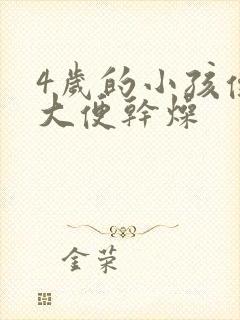 4歲的小孩
大便幹燥
金荣